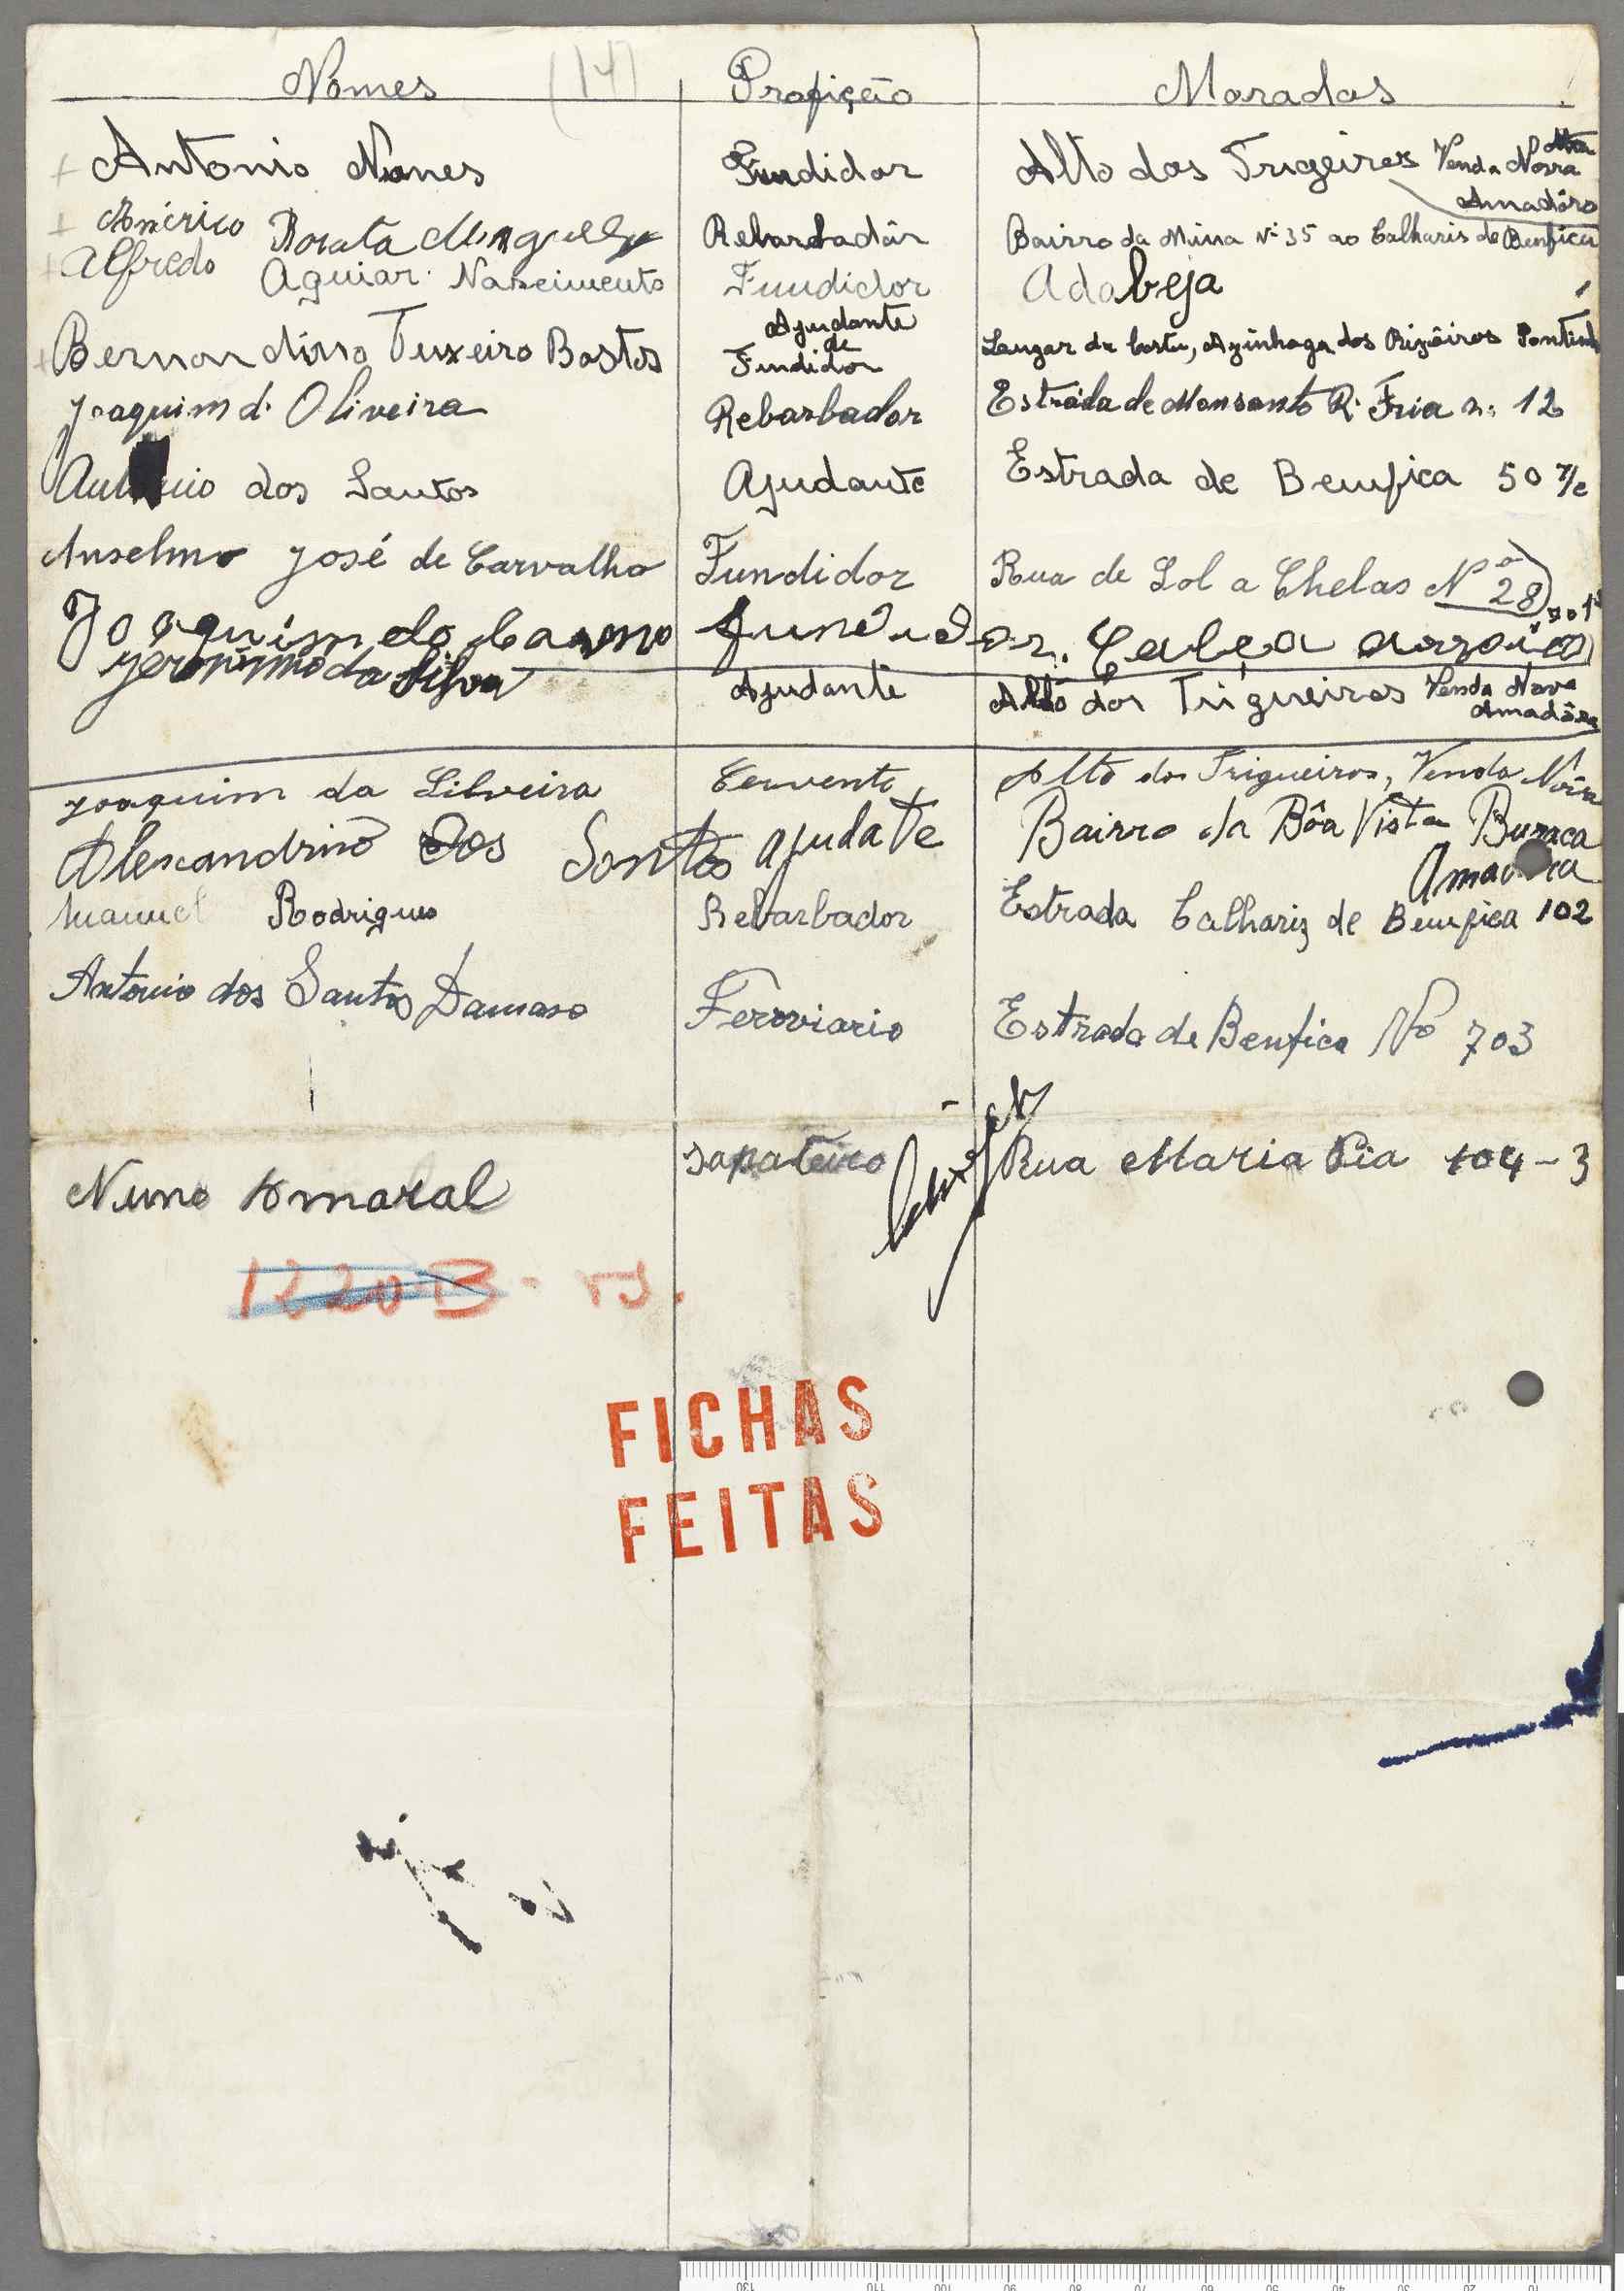 Nomes (14) Profição Moradas
Antonio Nunes Fundidor Alto dos Trigeiros Venda Nova
Amadôra
Américo Rebarbadôr Bairro da Mina Nº 35 ao Calharis de Benfica
Alfredo Aguiar Nascimento Fundidor Adabeja
Bernardino Teixeiro Bastos Ajudante de Fundidor Azinhaga dos
Joaquim d' Oliveira Rebarbador Estrada de Monsanto R. Fria n. 12
António dos Santos Ajudante Estrada de Bemfica 50
Anselmo José de Carvalho Fundidor Rua de Sol a Chelas Nº 28
Joaquim do Carmo fundidor.
Jeronimo da Silva Ajudante Alto dos Trigueiros Venda Nova
Amadôra
Joaquim da Silveira Cervente Alto dos Trigueiros, Venda Nova
Alexandrino Dos Santos ajudate Bairro da Bôa Vista Buraca
Amadora
Manuel Rodrigues Rebarbador Estrada Calhariz de Bemfica 102
Antonio dos Santos Damaso Feroviario Estrada de Benfica Nº 703
Nuno Amaral sapateiro Rua Maria Pia 104-3
1220B
FICHAS
FEITAS